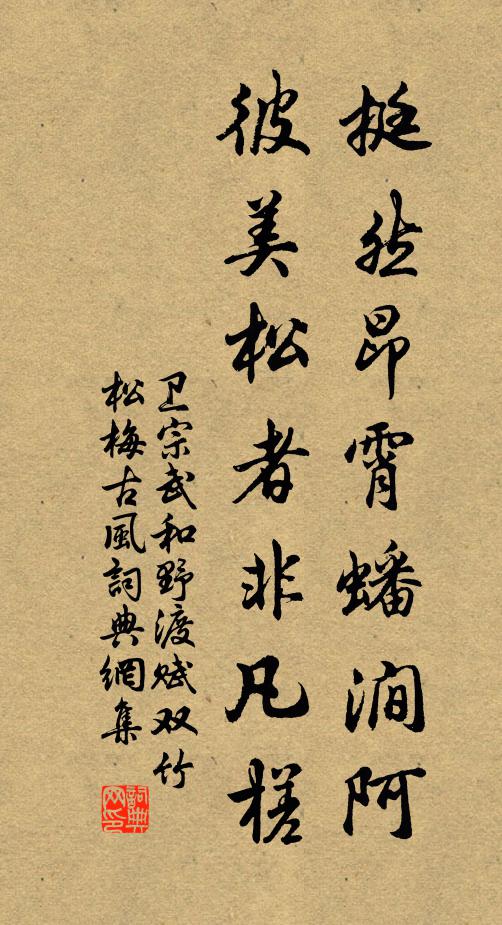 挺然昂霄蟠涧阿
彼美松者非凡槎
卫宗武和野渡赋双竹
松梅古風詞典網集
詞典網印